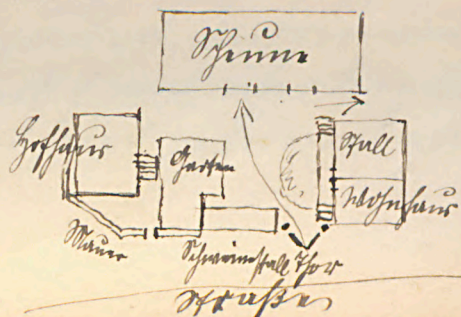 Scheune
Hofhaus
Garten
Stall
Wohnhaus
Mauer
Schweinestall
Thor
Straße